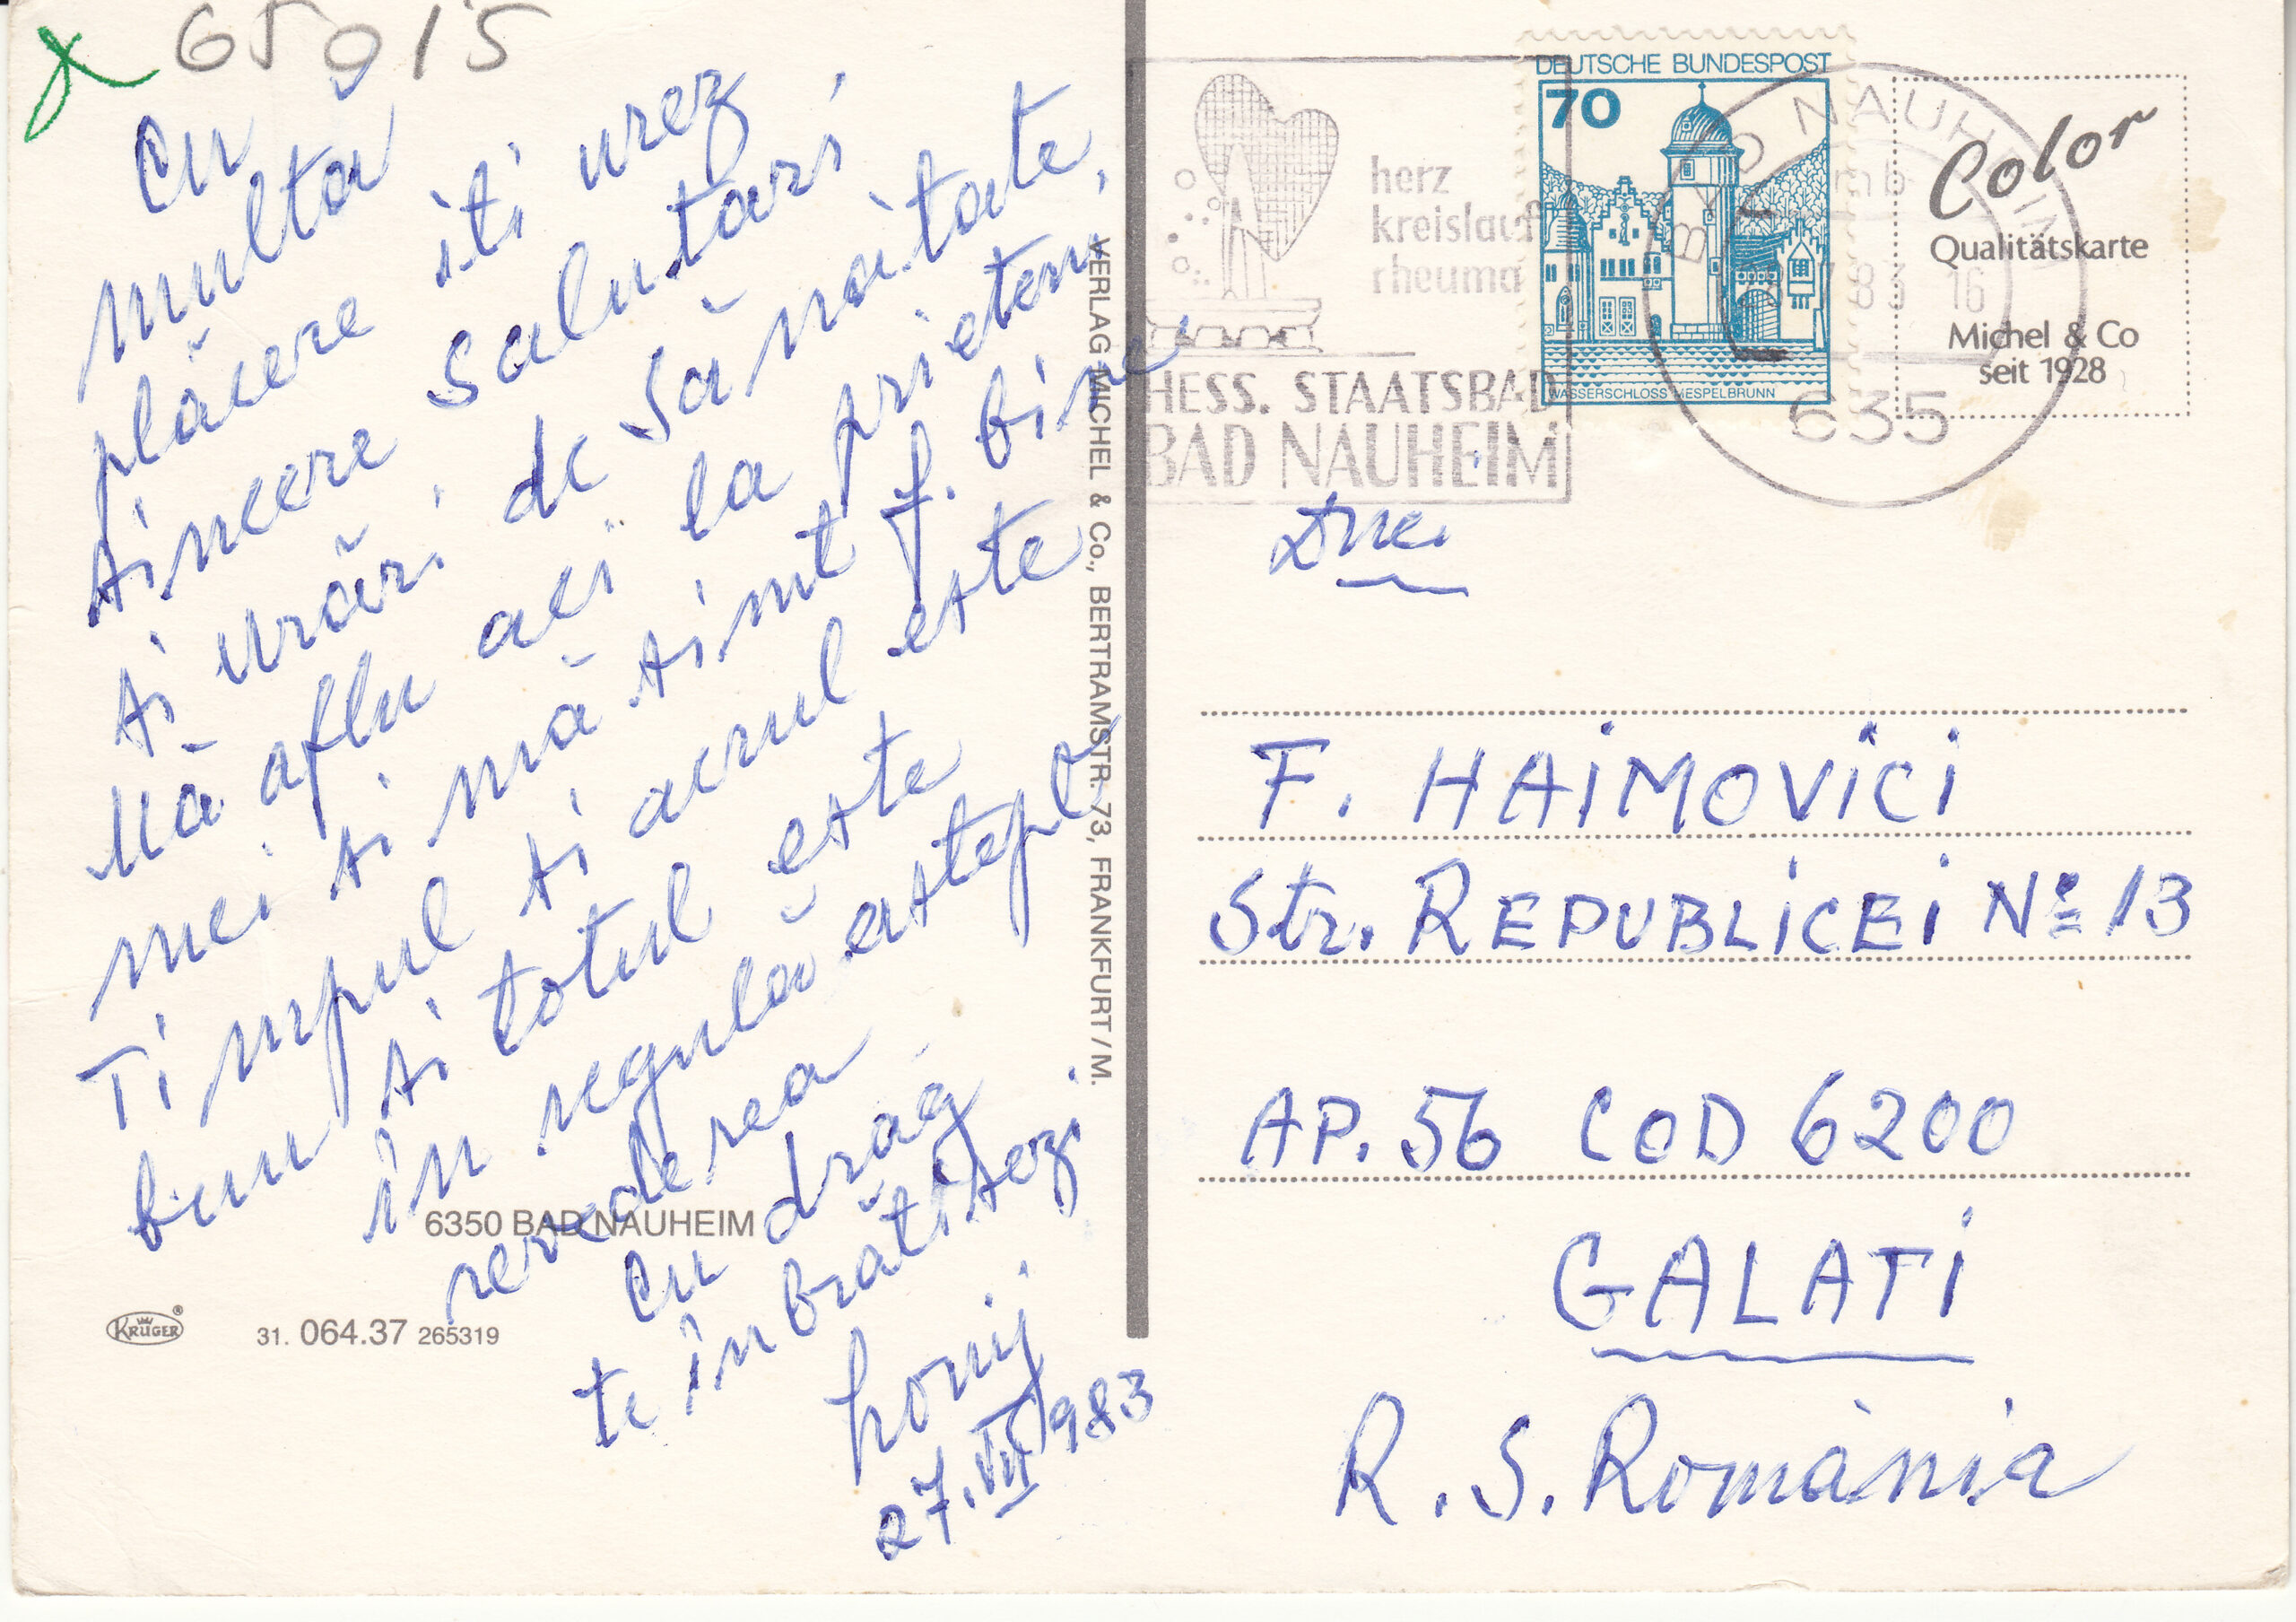 65015
Cu
multă
plăcere iti urez
sincere salutări
si urări de sănătate,
Mă aflu aci la prieteni
mei si mă simt f. bine
Timpul si aerul este
bun si totul este
în regulă astept
revederea
cu drag
te înbrătisezi
27.VII 983
6350 BAD NAUHEIM
KRÜGER
31. 064.37 265319
VERLAG MICHEL & Co., BERTRAMSTR. 73, FRANKFURT / M.
herz
kreislauf
rheuma
HESS. STAATSBAD
BAD NAUHEIM
DEUTSCHE BUNDESPOST
70
WASSERSCHLOSS MESPELBRUNN
BAD NAUHEIM
83 16
635
Color
Qualitätskarte
Michel & Co
seit 1928
F. HAIMOVICI
Str. REPUBLICEI No 13
AP. 56 COD 6200
GALATI
R. S. România